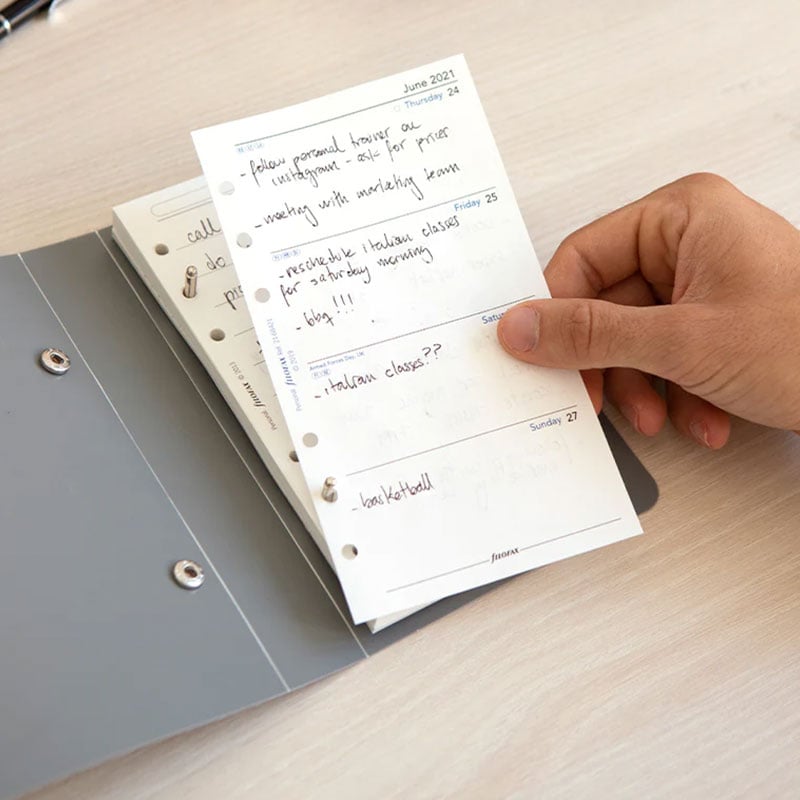 June 2021
Thursday 24
- follow personal trainer on
instagram - ask for prices
- meeting with marketing team
Friday 25
- reschedule italian classes
for saturday morning
- bbq!!!
Armed Forces Day, UK
- italian classes??
Sunday 27
- basketball
filofax
call
do
Personal filofax © 2013